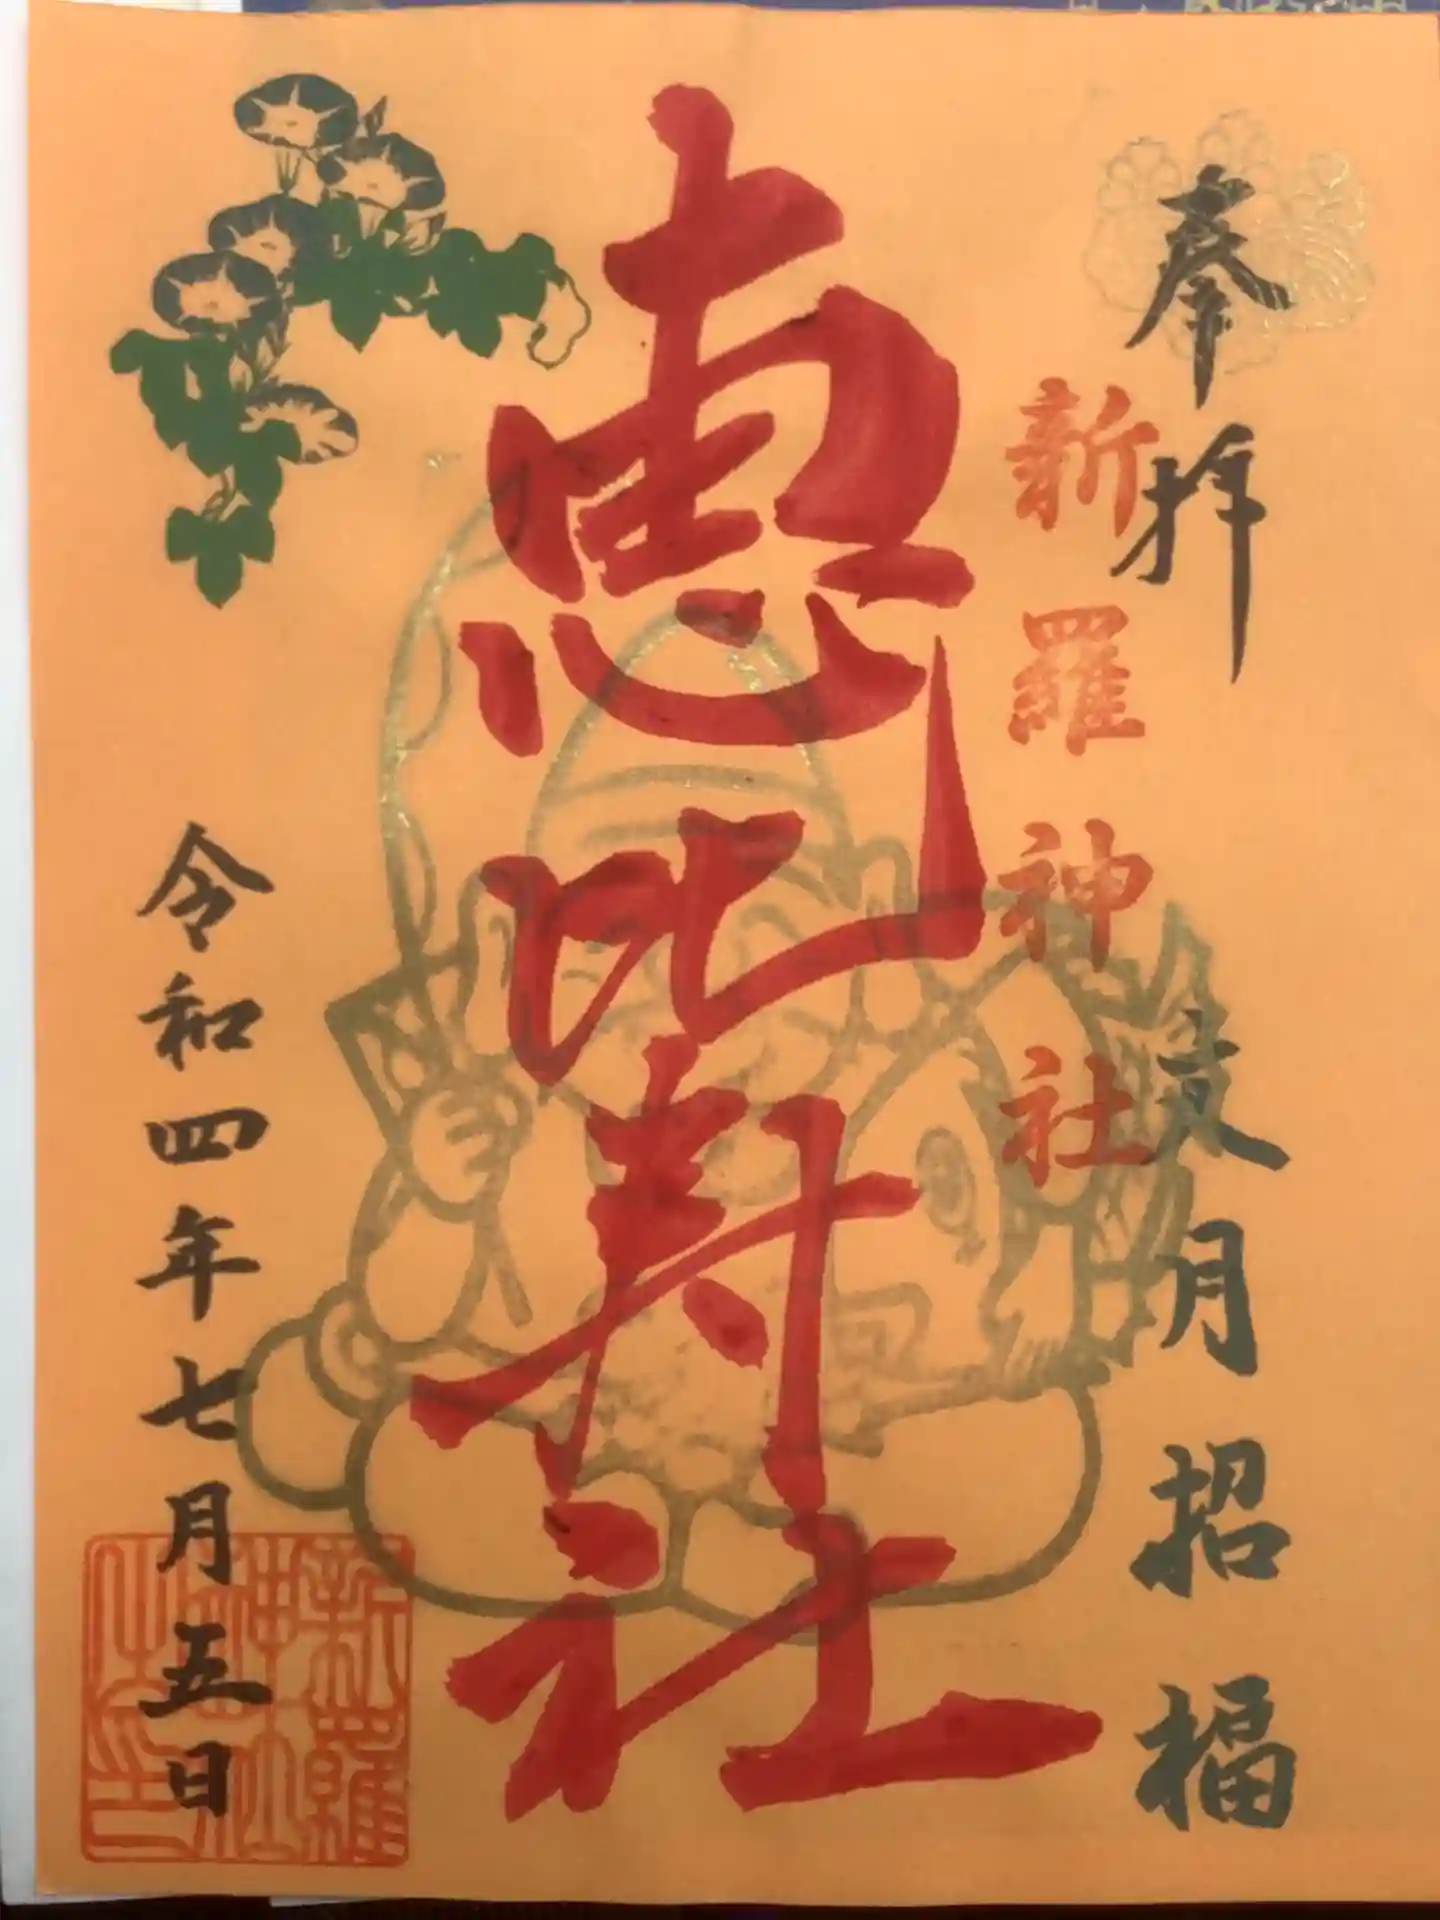 奉拝
月招福
新羅神社
恵比寿社
令和四年七月五日
新羅
神社
之印